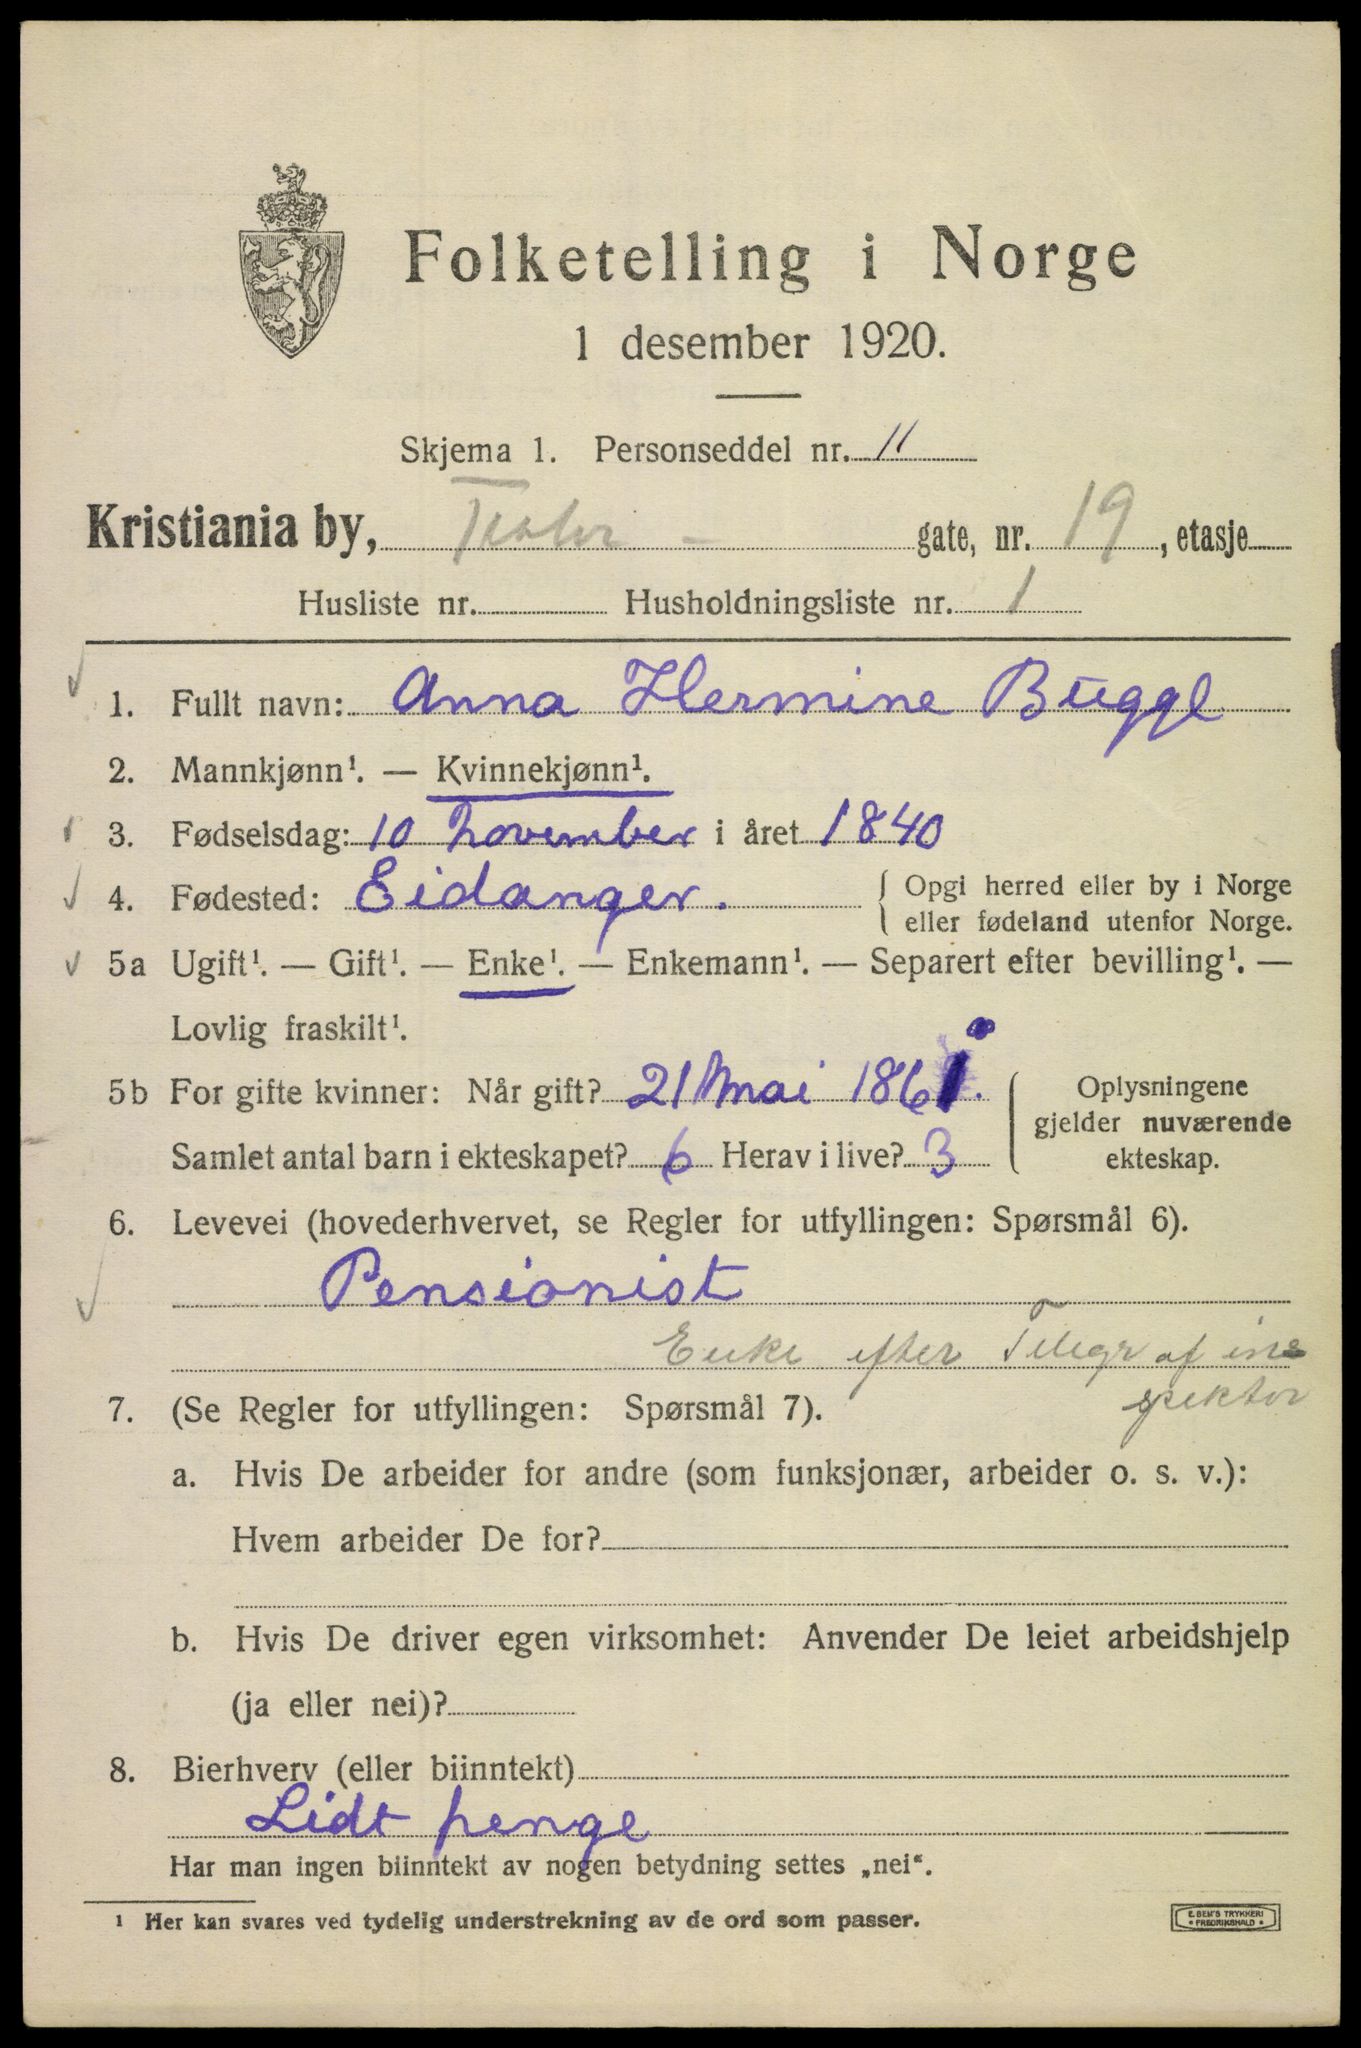 Folketelling i Norge
1 desember 1920.
Skjema 1. Personseddel nr. 11
Kristiania by, Teater - gate, nr. 19, etasje
Husliste nr. Husholdningsliste nr. 1
1. Fullt navn: Anna Hermine Bugge
2. Mannkjønn¹. — Kvinnekjønn¹.
3. Fødselsdag: 10 November i året 1840
4. Fødested: Eidanger. { Opgi herred eller by i Norge
eller fødeland utenfor Norge.
5a Ugift¹. — Gift¹. — Enke¹. — Enkemann¹. — Separert efter bevilling¹. —
Lovlig fraskilt¹.
5b For gifte kvinner: Når gift? 21 Mai 1861.
Samlet antal barn i ekteskapet? 6 Herav i live? 3
Oplysningene
gjelder nuværende
ekteskap.
6. Levevei (hovederhvervet, se Regler for utfyllingen: Spørsmål 6).
Pensionist
Enke efter Telegraf ins
pektør
7. (Se Regler for utfyllingen: Spørsmål 7).
a. Hvis De arbeider for andre (som funksjonær, arbeider o. s. v.):
Hvem arbeider De for?
b. Hvis De driver egen virksomhet: Anvender De leiet arbeidshjelp
(ja eller nei)?
8. Bierhverv (eller biinntekt)
Lidt penge
Har man ingen biinntekt av nogen betydning settes „nei“.
¹ Her kan svares ved tydelig understrekning av de ord som passer.
E. SEM'S TRYKKERI
• FREDRIKSHALD •